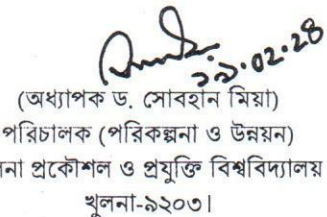 (অধ্যাপক ড. সোবহান মিয়া)
পরিচালক (পরিকল্পনা ও উন্নয়ন)
না প্রকৌশল ও প্রযুক্তি বিশ্ববিদ্যালয়
খুলনা-৯২০৩।